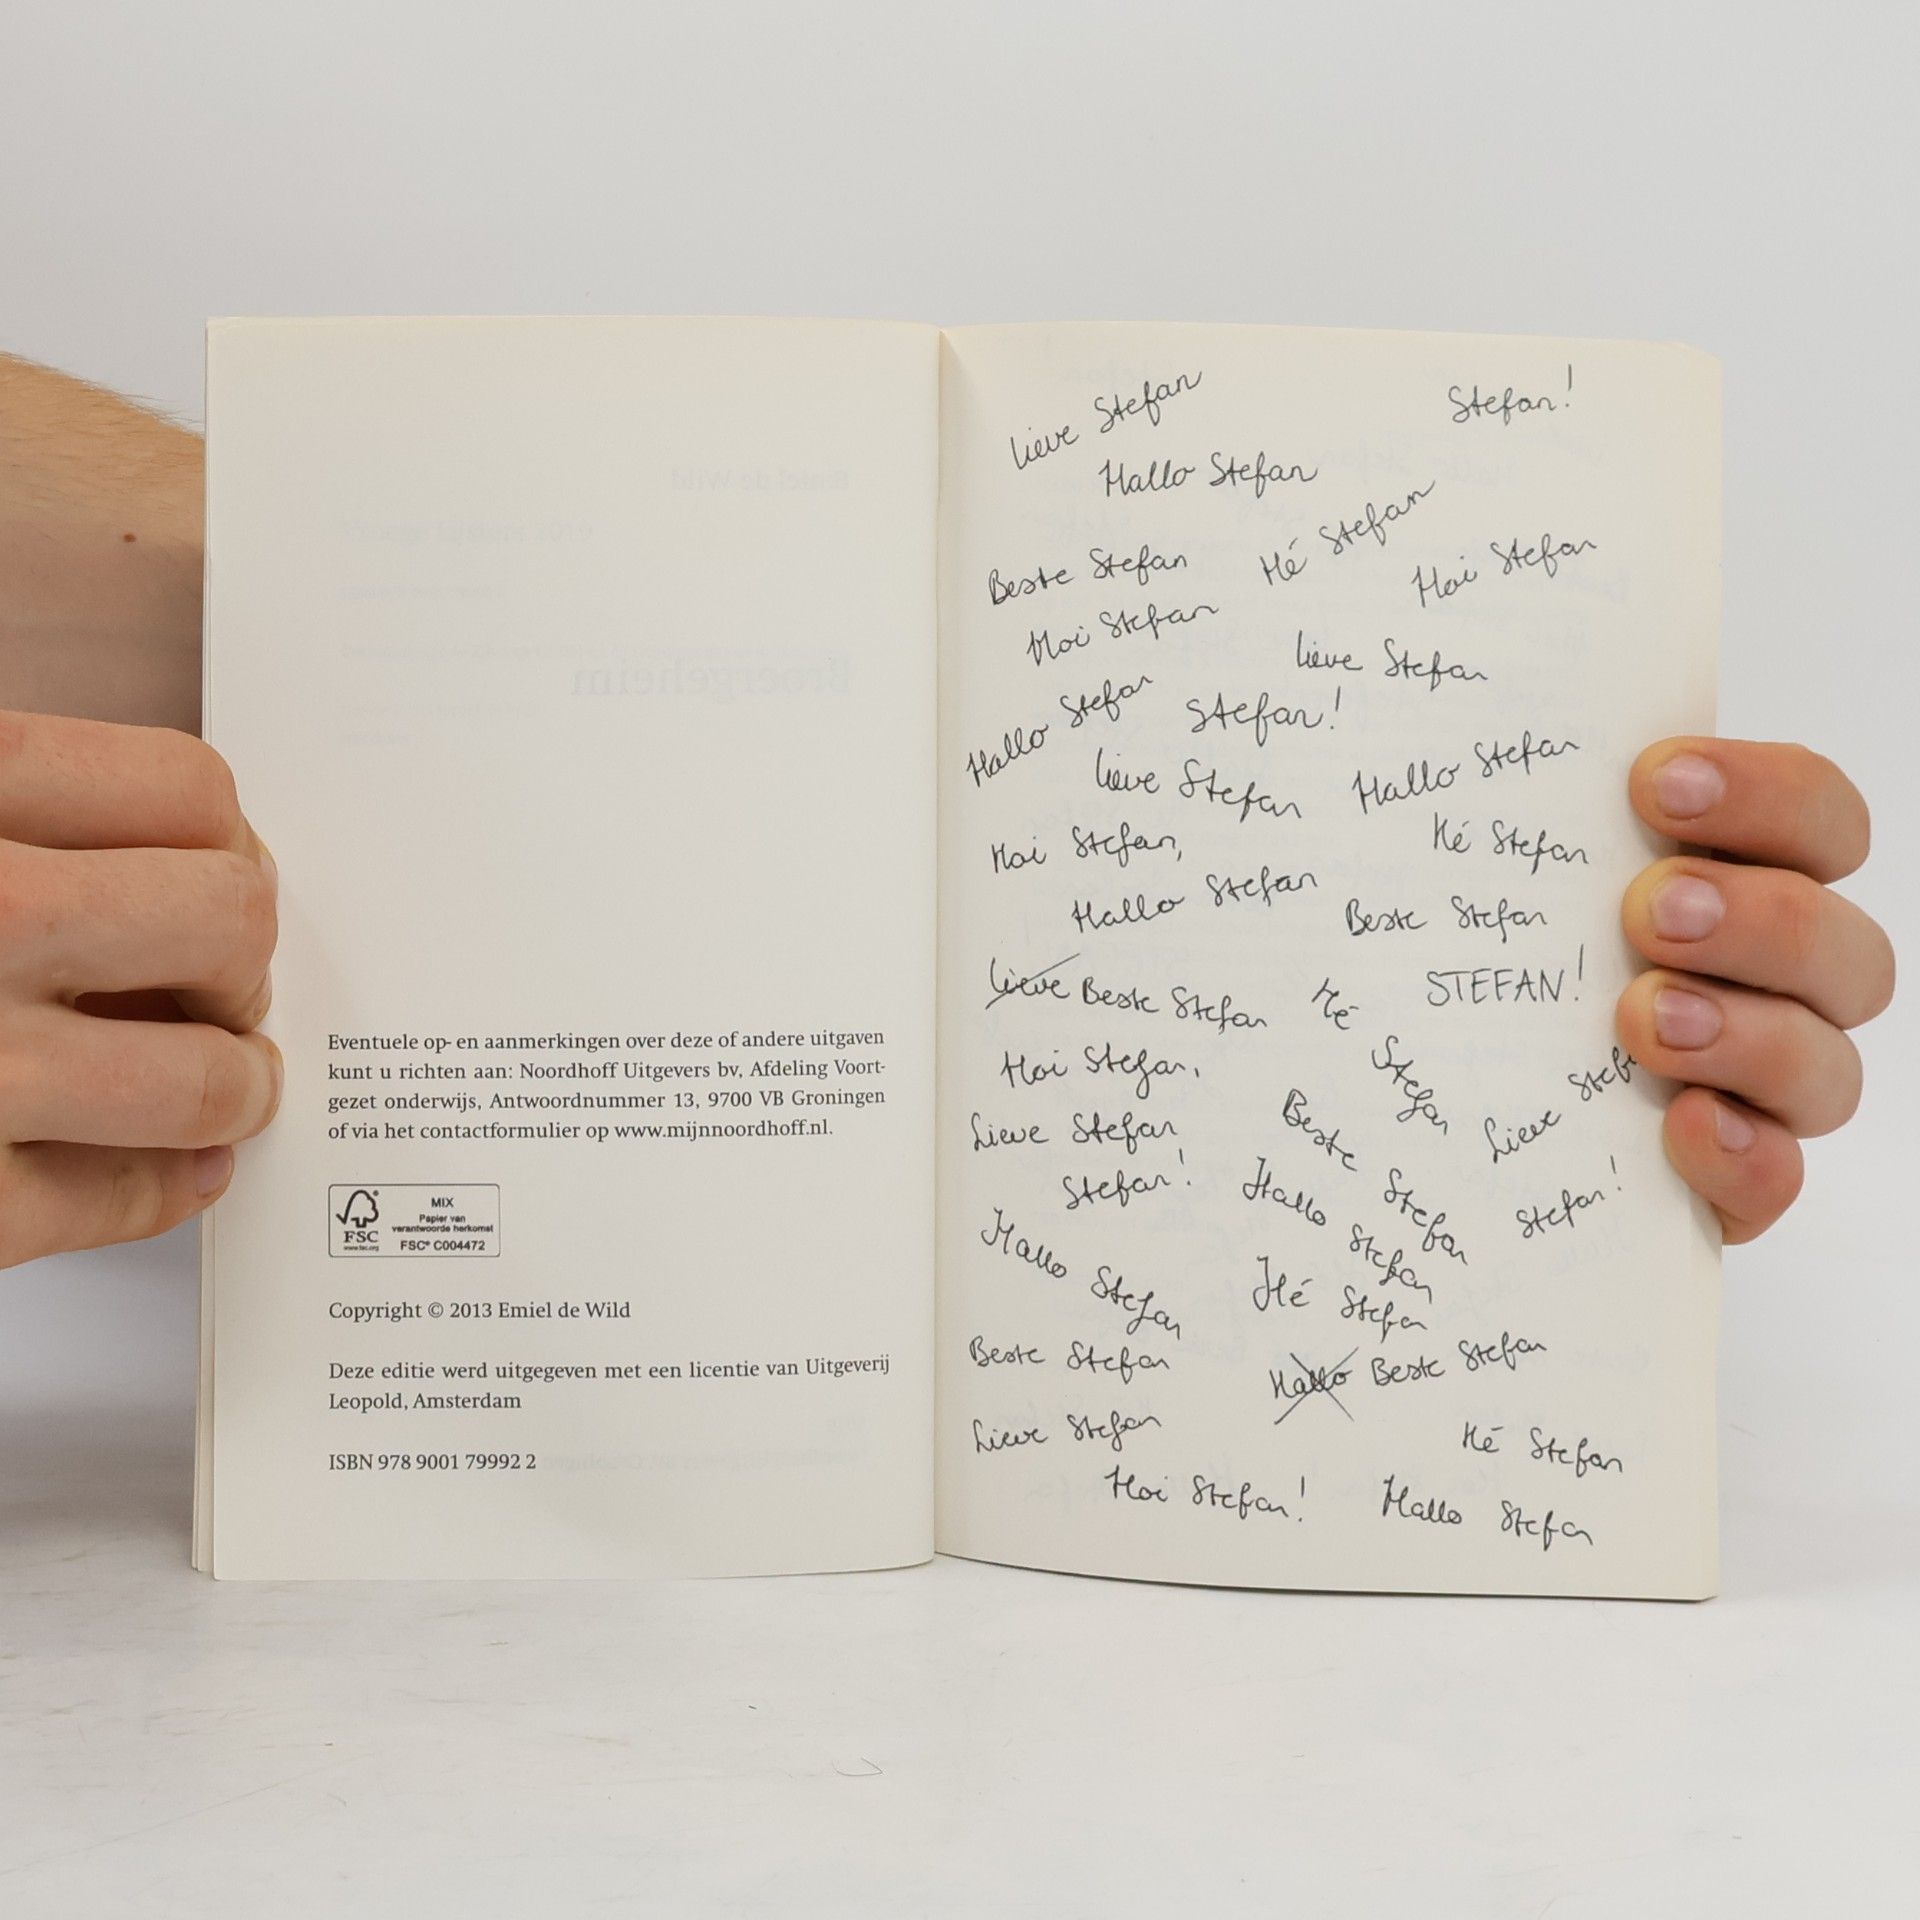 Eventuele op- en aanmerkingen over deze of andere uitgaven
kunt u richten aan: Noordhoff Uitgevers bv, Afdeling Voort-
gezet onderwijs, Antwoordnummer 13, 9700 VB Groningen
of via het contactformulier op www.mijnnoordhoff.nl.
FSC
www.fsc.org
MIX
Papier van
verantwoorde herkomst
FSC® C004472
Copyright © 2013 Emiel de Wild
Deze editie werd uitgegeven met een licentie van Uitgeverij
Leopold, Amsterdam
ISBN 978 9001 79992 2
Lieve Stefan
Stefan!
Hallo Stefan
Hé Stefan
Beste Stefan
Hoi Stefan
Hoi Stefan
Lieve Stefan
Hallo Stefan
Stefan!
Lieve Stefan
Hallo Stefan
Hoi Stefan,
Hé Stefan
Hallo Stefan
Beste Stefan
Lieve Beste Stefan
Hé Stefan
STEFAN!
Hoi Stefan,
Lieve Stefan
Beste Stefan
Lieve Stefan
Stefan!
Hallo Stefan
Stefan!
Hallo Stefan
Hé Stefan
Beste Stefan
Hallo Beste Stefan
Lieve Stefan
Hé Stefan
Hoi Stefan!
Hallo Stefan